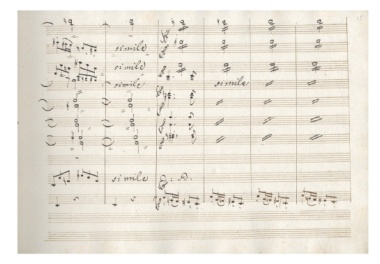 simile
simile
simile simile
simile